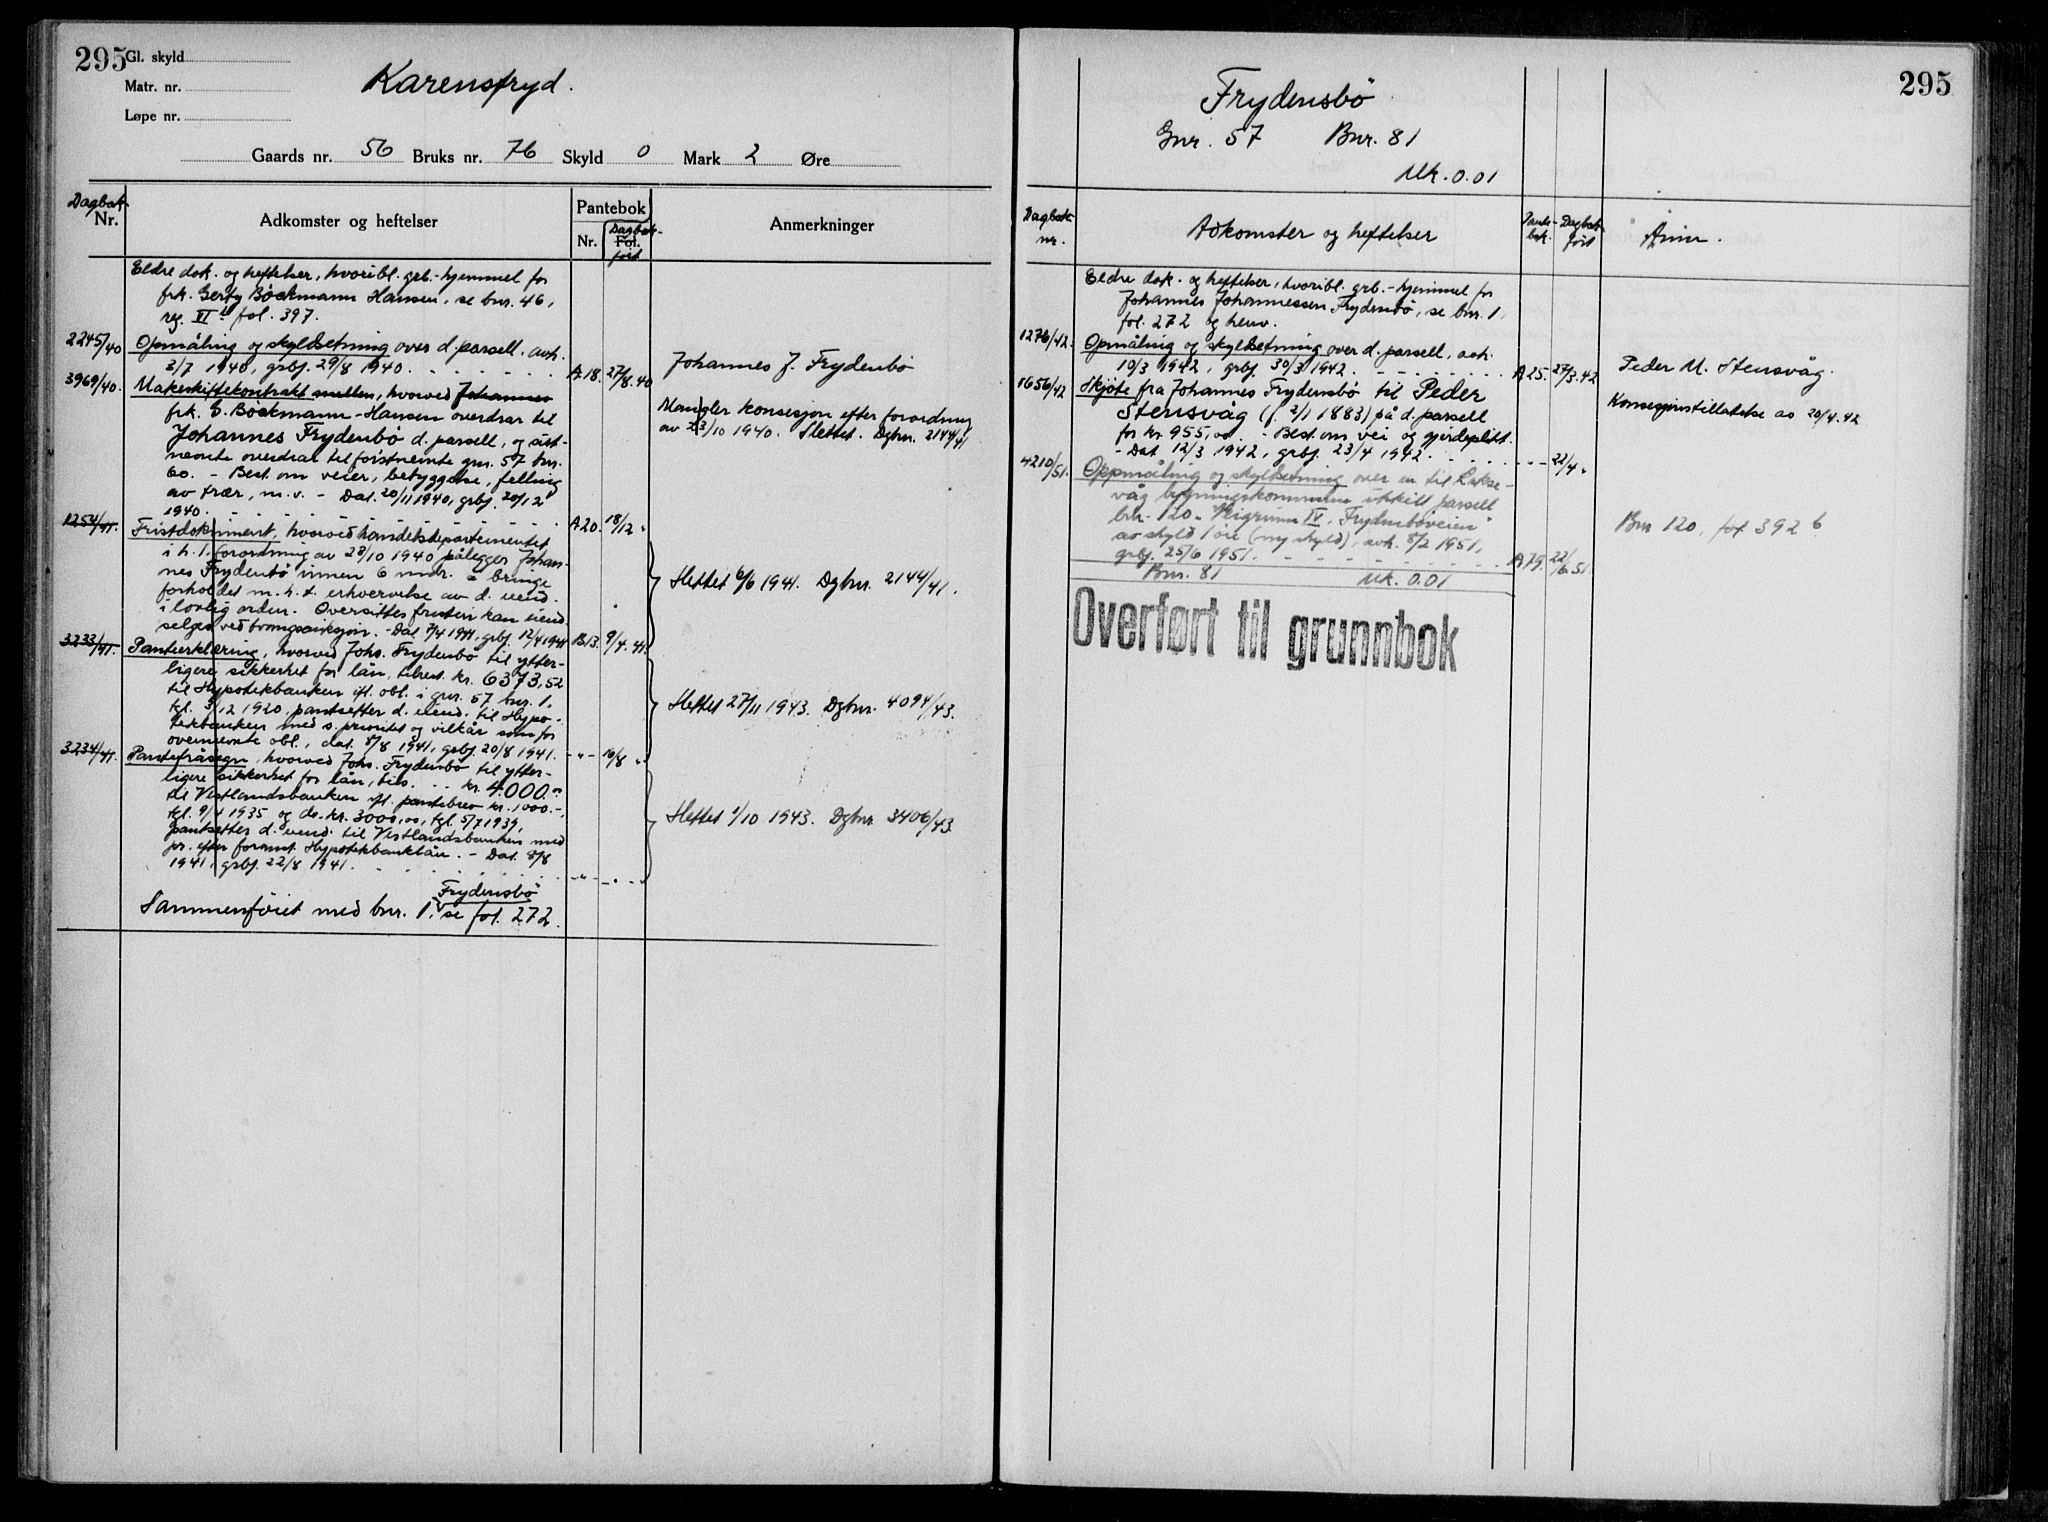 295
Gl. skyld
Matr. nr.
Løpe nr.
Karensfryd.
Gaards nr. 56 Bruks nr. 76 Skyld 0 Mark 2 Øre
Dagbok Nr. Adkomster og heftelser Pantebok Nr. Fol. Dagbok ført Anmerkninger
Eldre dok. og heftelser, hvoribl. grb.-hjemmel for
frk. Gerty Böckmann Hansen, se bnr. 46,
reg. VI fol. 397.
2245/40 Opmåling og skyldsetning over d. parsell, avh.
3/7 1940, grbf. 29/8 1940. A.18. 27/8.40 Johannes J. Frydenbö
3969/40. Makeskiftekontrakt mellem, hvorved Johannes
frk. G. Böckmann-Hansen overdrar til
Johannes Frydenbö d. parsell, og sist-
nevnte overdrar til förstnevnte gnr. 57 bnr.
60. - Best. om veier, bebyggelse, felling
av trær, m.v. - Dat. 20/11 1940, grbf. 20/12
1940. A20. 18/12 "
Mangler konsesjon efter forordning
av 23/10 1940. Slettet. Dgbnr. 2144/41
1254/41. Fristdokument, hvorved handelsdepartementet
i h. t. forordning av 23/10 1940 pålegger Johan-
nes Frydenbö innen 6 mndr. å bringe
forholdet m. h. t. erhvervelse av d. eiend.
i lovlig orden. Oversittes fristen kan eiend.
selges ved tvangsauksjon. - Dat. 7/4 1941, grbf. 12/4 1941 B13. 9/4.41.
Slettet 6/6 1941. Dgbnr. 2144/41.
3233/41. Panteerklæring, hvorved Johs. Frydenbö til ytter-
ligere sikkerhet for lån, tilrest. kr. 6373,52
til Hypotekbanken ifl. obl. i gnr. 57 bnr. 1,
tgl. 3/12 1920, pantsetter d. eiend. til Hypo-
tekbanken med s. prioritet og vilkår som for
ovennevnte obl., dat. 8/8 1941, grbf. 20/8 1941. -"- 16/8 "
Slettet 27/11 1943. Dgbnr. 4094/43.
3234/41. Pantefråsegn, hvorved Johs. Frydenbö til ytter-
ligere sikkerhet for lån, tils. kr. 4.000.00
til Vestlandsbanken ifl. pantebrev kr. 1000.-,
tgl. 9/4 1935 og do. kr. 3000,00, tgl. 5/7 1939,
pantsetter d. eiend. til Vestlandsbanken med
pr. efter forannt. Hypotekbanklån. - Dat. 8/8
1941, grbf. 22/8 1941. -"- -"-
Slettet 1/10 1943. Dgbnr. 3406/43.
Frydensbö
Sammenföiet med bnr. 1, se fol. 272.
295
Frydensbö
Gnr. 57 Bnr. 81
Mk. 0.01
Dagbok nr. Adkomster og heftelser Pantebok. Dagbok ført Anm.
Eldre dok. og heftelser, hvoribl. grb.-hjemmel for
Johannes Johannessen Frydensbö, se bnr. 1,
fol. 272 og henv.
1276/42. Opmåling og skyldsetning over d. parsell, avh.
10/3 1942, grbf. 30/3 1942. A25. 27/3.42 Peder M. Stensvåg.
1656/42 Skjöte fra Johannes Frydensbö til Peder
Stensvåg (f. 2/1 1883) på d. parsell
for kr. 955,00. - Best. om vei og gjerdeplikt.
- Dat. 12/3 1942, grbf. 23/4 1942. -"- 22/4 "
Konsesjonstillatelse av 20/4.42
4210/51. Oppmåling og skyldsetning over en til Lakse-
våg bygningskommune utskilt parsell
bnr. 120 "Veigrunn IV, Frydenböveien"
av skyld 1 öre (ny skyld), avh. 8/2 1951,
grbf. 25/6 1951. A79. 22/6.51
Bnr 120, fol 392 b
Bnr. 81 Mk. 0.01
Overført til grunnbok